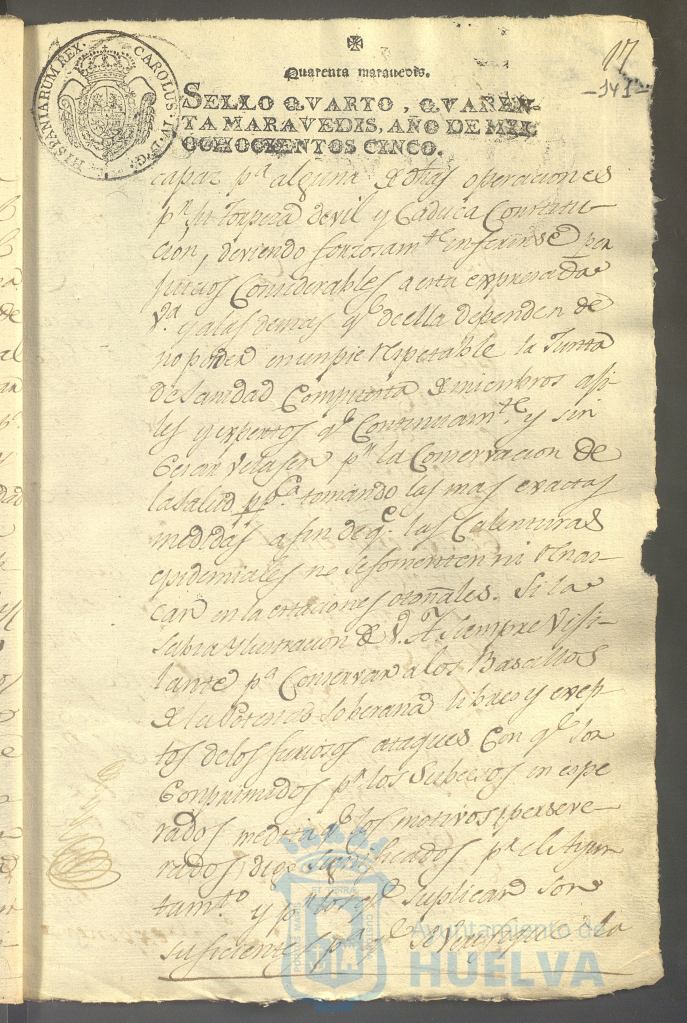 17
141
HISPANIARUM REX. CAROLUS. IV. D. G.
Quarenta maravedis.
SELLO QVARTO, QVAREN-
TA MARAVEDIS, AÑO DE MIL
OCHOCIENTOS CINCO.
capaz pª alguna de otras operaciones
pr su torpeza devil y Caduca Constitu-
cion, deviendo forzosamte inferirse per
juicios Considerables a esta expresada
Vª y alas demas qe de ella dependen de
no poner en un pie respetable la Junta
de Sanidad Compuesta de miembros agi-
les y expertos qe Continuamte y sin
Cesar velasen pr la Conservacion de
la salud ppca tomando las mas exactas
medidas a fin de qe las Calenturas
epidemiales no se fomenten ni renaz-
can en las estaciones otoñales. Si la
Sabia Ylustracion de V. A. siempre Visi-
lante pª Conservar a los Basallos
de la Potencia Soberana libres y exep
tos de los furiosos ataques Con qe son
Comprimidos pr los Subcesos inespe
rados medita qe los motivos
rados digo significados pr el Ayun
tamto y pr los qe suplican son
suficientes pª qe se Verifique la
Ayuntamiento de
HUELVA